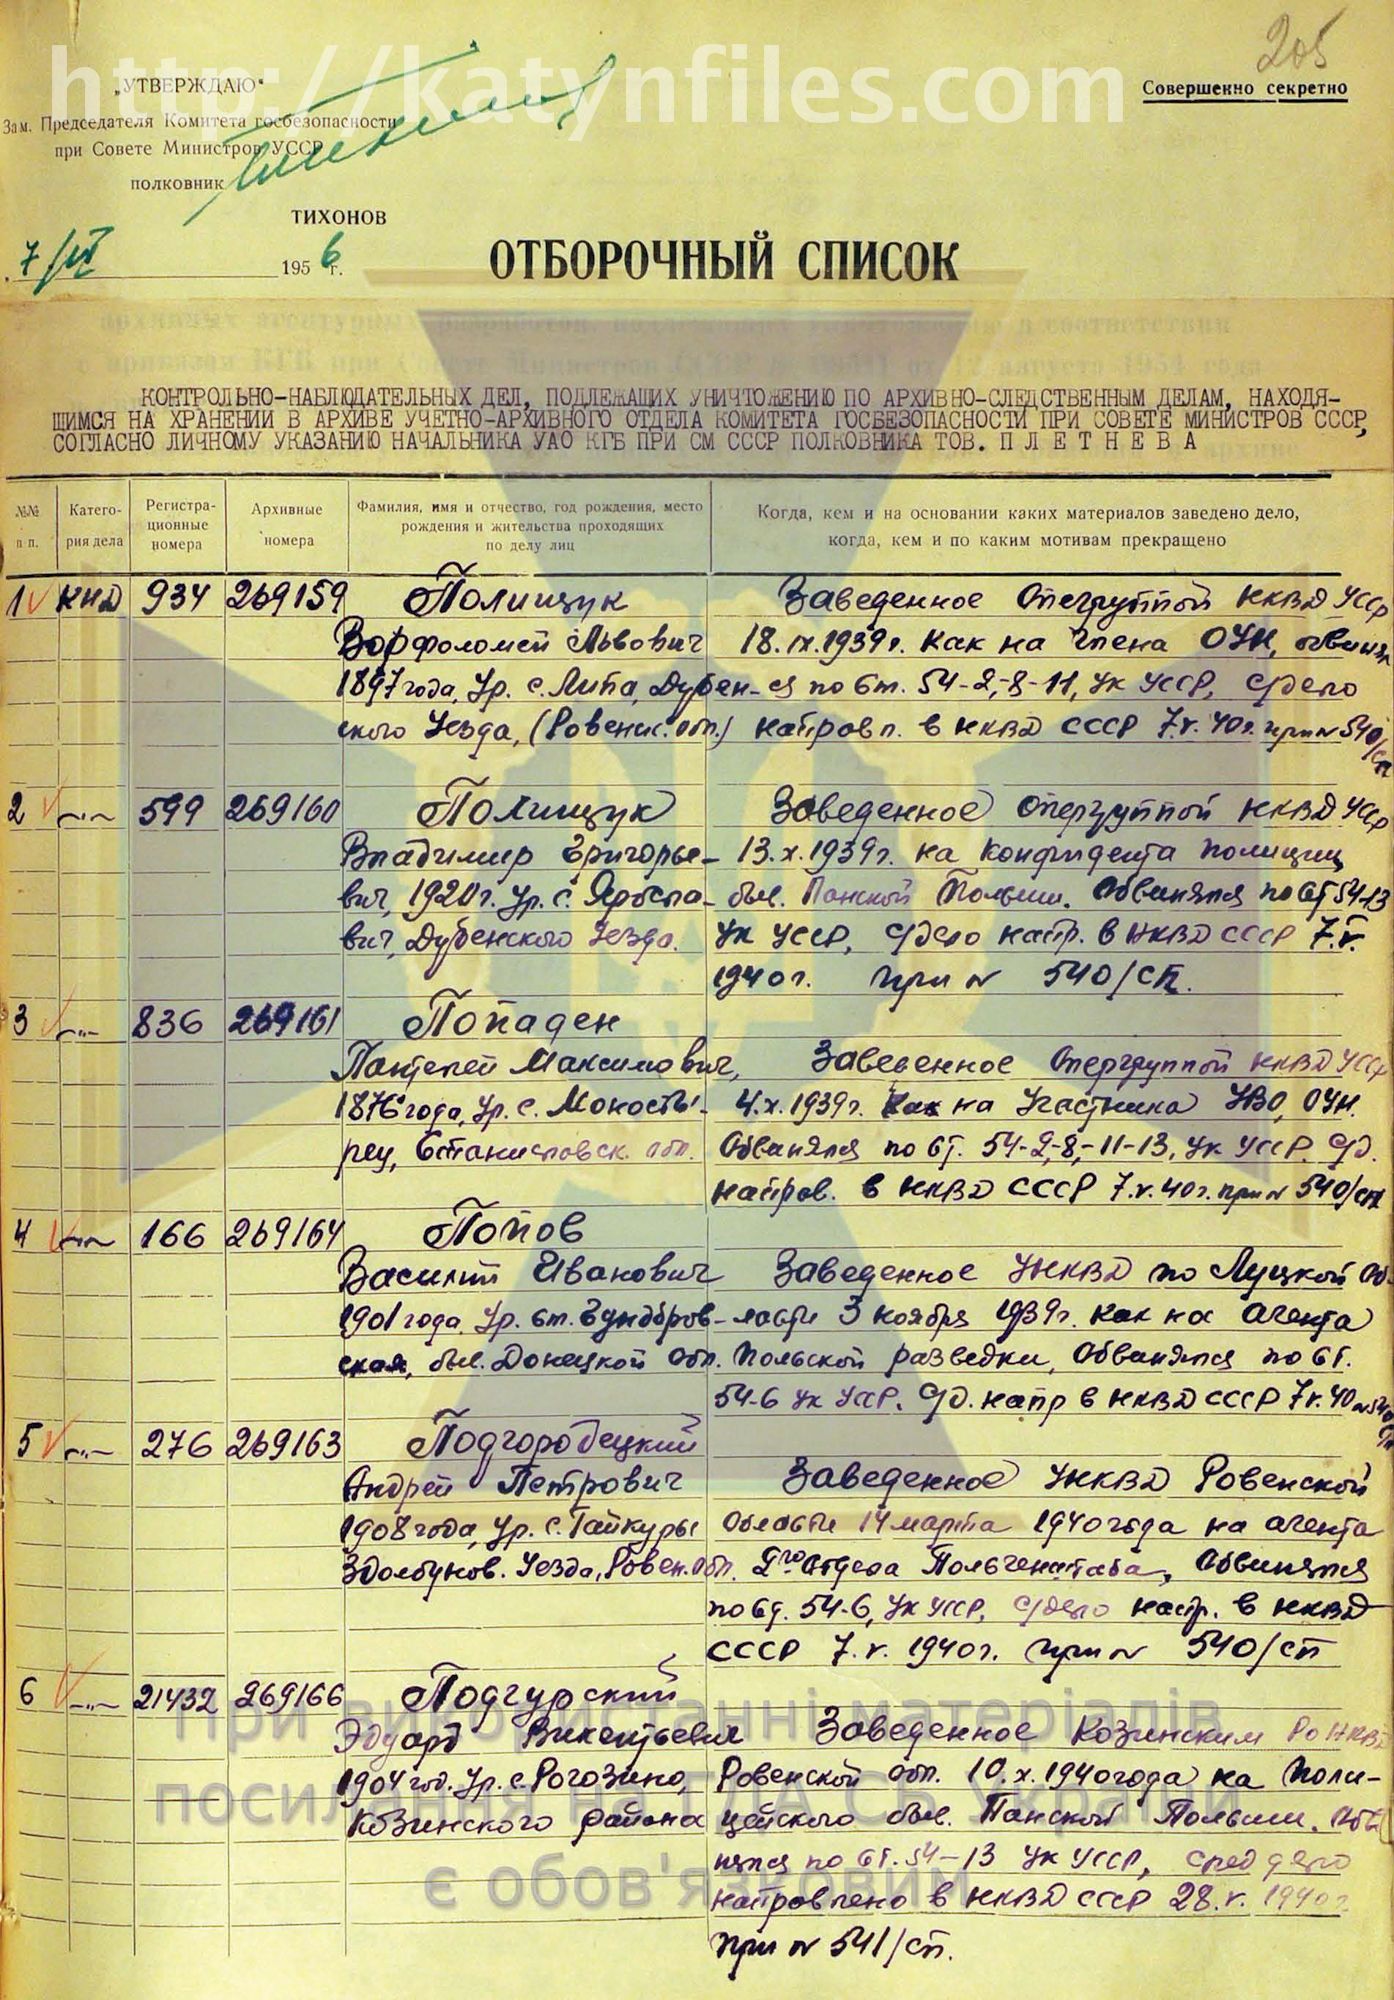 http://katynfiles.com
205
„УТВЕРЖДАЮ“
Совершенно секретно
Зам. Председателя Комитета госбезопасности
при Совете Министров УССР
полковник
ТИХОНОВ
7/VI 1956 г.
ОТБОРОЧНЫЙ СПИСОК
КОНТРОЛЬНО-НАБЛЮДАТЕЛЬНЫХ ДЕЛ, ПОДЛЕЖАЩИХ УНИЧТОЖЕНИЮ ПО АРХИВНО-СЛЕДСТВЕННЫМ ДЕЛАМ, НАХОДЯ-
ЩИМСЯ НА ХРАНЕНИИ В АРХИВЕ УЧЕТНО-АРХИВНОГО ОТДЕЛА КОМИТЕТА ГОСБЕЗОПАСНОСТИ ПРИ СОВЕТЕ МИНИСТРОВ СССР,
СОГЛАСНО ЛИЧНОМУ УКАЗАНИЮ НАЧАЛЬНИКА УАО КГБ ПРИ СМ СССР ПОЛКОВНИКА ТОВ. П Л Е Т Н Е В А
№№ п п.
Катего-
рия дела
Регистра-
ционные
номера
Архивные
номера
Фамилия, имя и отчество, год рождения, место
рождения и жительства проходящих
по делу лиц
Когда, кем и на основании каких материалов заведено дело,
когда, кем и по каким мотивам прекращено
1 КНД 934 269159 Полищук
Ворфоломей Львович
1897 года, Ур. с. Липа, Дубен-
ского Уезда, (Ровенс. обл.)
Заведенное Опергруппой НКВД УССР
18.IX.1939г. Как на члена ОУН, обвинял
ся по ст. 54-2,-8-11, УК УССР, с/дело
направл. в НКВД СССР 7.V.40г. при № 540/сп
2 -„- 599 269160 Полищук
Владимир Григорье-
вич, 1920г. Ур. с. Яросла-
вич, Дубенского Уезда.
Заведенное Опергруппой НКВД УССР
13.X.1939г. на Конфидента полиции
быв. Панской Польши. Обвинялся по ст 54-13
УК УССР, с/дело напр. в НКВД СССР 7.V.
1940г. при № 540/сп.
3 -„- 836 269161 Попаден
Пантелей Максимович,
1876 года, Ур. с. Монасты-
рец, Станиславск. обл.
Заведенное Опергруппой НКВД УССР
4.X.1939г. Как на Участника УВО, ОУН.
Обвинялся по ст. 54-2,-8,-11-13, УК УССР. с/д.
направ. в НКВД СССР 7.V.40г. при № 540/сп
4 -„- 166 269164 Попов
Василий Иванович
1901 года, Ур. ст. Гундоров-
ская, быв. Донецкой обл.
Заведенное УНКВД по Луцкой об-
ласти 3 ноября 1939г. как на агента
Польской разведки, Обвинялся по ст.
54-6 УК УССР. с/д. напр в НКВД СССР 7.V.40 № 540/сп
5 -„- 276 269163 Подгородецкий
Андрей Петрович
1908 года, Ур. с. Тайкуры
Здолбунов. Уезда, Ровен. обл.
Заведенное УНКВД Ровенской
области 14 марта 1940 года на агента
2го Отдела Польгенштаба, Обвинялся
по ст. 54-6, УК УССР, с/дело напр. в НКВД
СССР 7.V.1940г. при № 540/сп
6 -„- 21432 269166 Подгурский
Эдуард Викентьевич
1904 год. Ур. с. Рогозино,
Козинского района
Заведенное Козинским РО НКВД
Ровенской обл. 10.X.1940 года на Поли-
цейского быв. Панской Польши. Обви
нялся по ст. 54-13 УК УССР, след дело
направлено в НКВД СССР 28.V.1940г
при № 541/сп.
При використанні матеріалів
посилання на ГДА СБ України
є обов'язковим